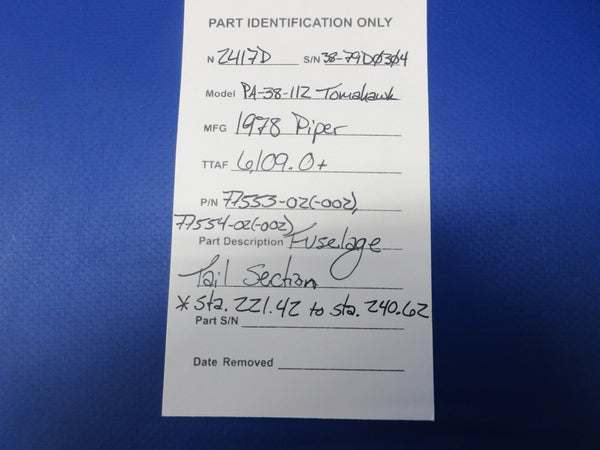 PART IDENTIFICATION ONLY
N 2417D S/N 38-79D0304
Model PA-38-112 Tomahawk
MFG 1978 Piper
TTAF 6,109.0+
P/N 77553-02(-002),
77554-02(-002)
Part Description Fuselage
Tail Section
* Sta. 221.42 to Sta. 240.62
Part S/N
Date Removed